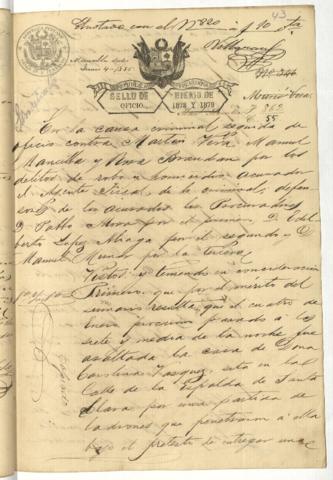 43
Anotado con el Nº 820 a f 10 Sta
SELLO DE OFICIO
BIENIO DE 1878 Y 1879
En la causa criminal seguida de
oficio contra Martin Vera, Manuel
y Rosa Brandan por los
delitos de robo y homicidio acusador
el Agente Fiscal de lo criminal, defen
sores de los acusados los Procuradores
D. Pablo Mora por el primero, D. Edel
berto Lopez Aliaga por el segundo y D.
Manuel por la tercera
Vistos y teniendo en consideracion
Primero, que por el merito del
sumario resulta que el cuatro de
Enero proximo pasado a las
siete y media de la noche fue
asaltada la casa de Doña
Carolina Vasquez, sita en la
Calle de la Espalda de Santa
Clara por una partida de
ladrones que penetraron a ella
bajo el pretesto de entregar una